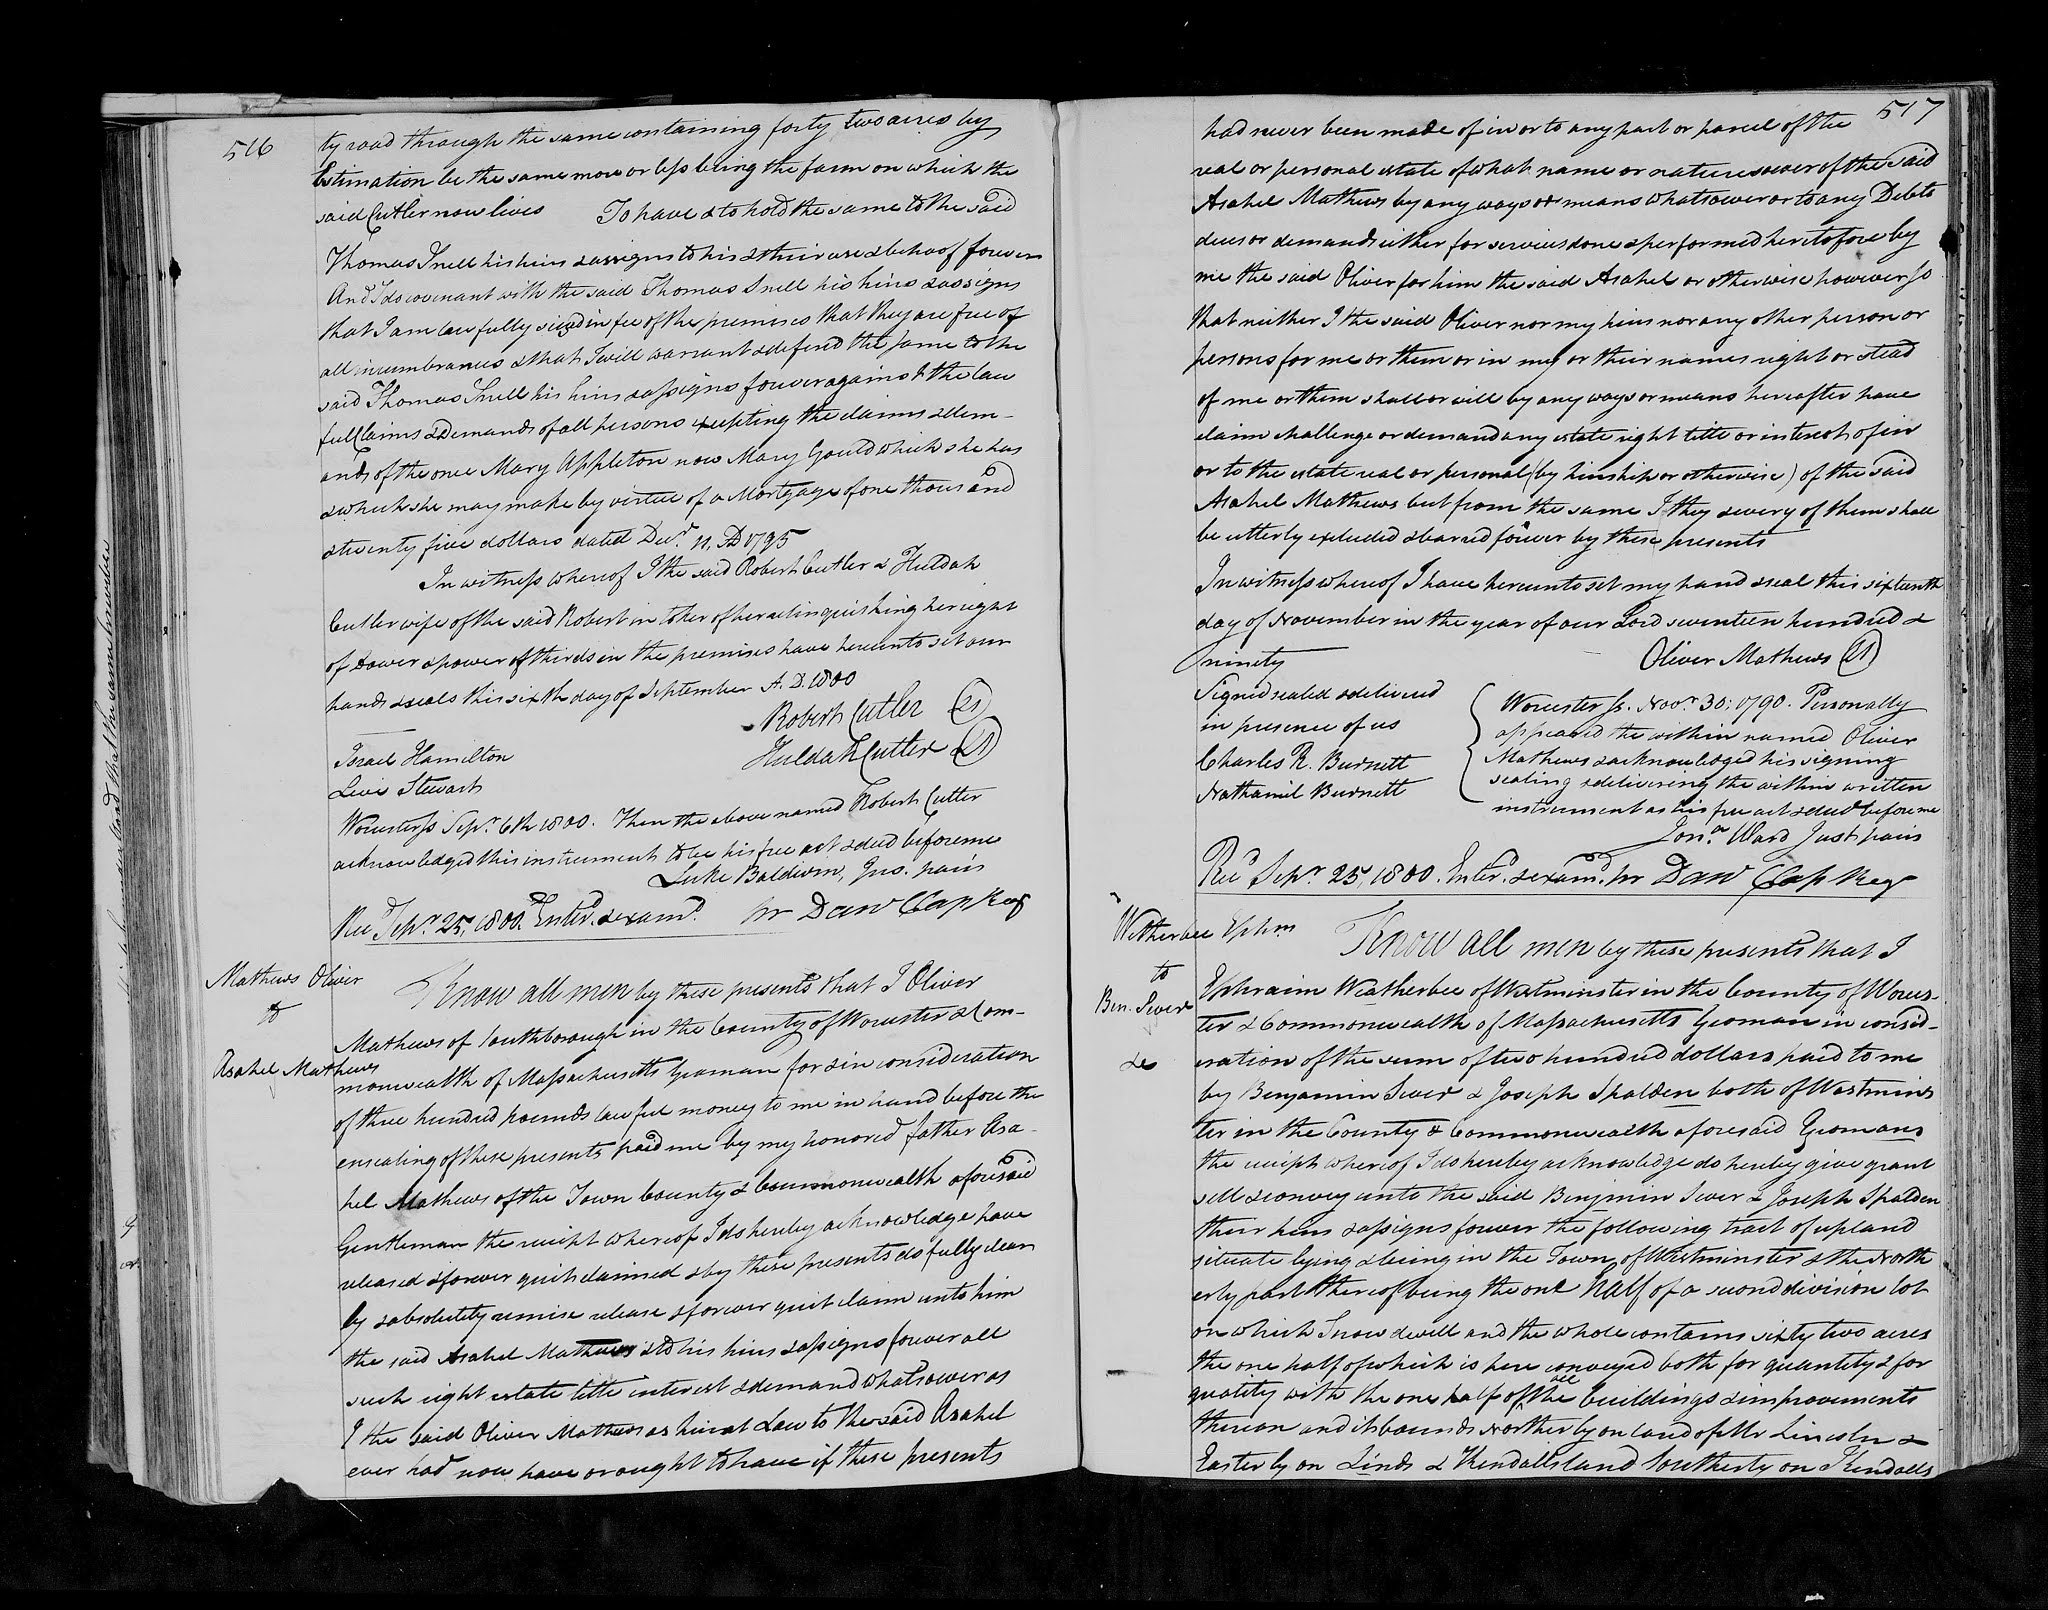 516
ty road through the same containing forty two acres by
Estimation be the same more or less being the farm on which the
said Cutler now lives To have & to hold the same to the said
Thomas Snell his heirs & assigns to his & their use & behoof forever
And I do covenant with the said Thomas Snell his heirs & assigns
that I am lawfully siezd in fee of the premises that they are free of
all incumbrances & that I will warrant & defend the same to the
said Thomas Snell his heirs & assigns forever against the law
full Claims & Demands of all persons excepting the claims & dem-
ands of the once Mary Appleton now Mary Gould which she has
& which she may make by virtue of a Mortgage of one thousand
& twenty five dollars dated Decr. 11, AD 1795
In witness whereof I the said Robert Cutler & Huldah
Cutler wife of the said Robert in token of her relinquishing her right
of Dower & power of thirds in the premises have hereunto set our
hands & seals this sixth day of September A. D. 1800
Robert Cutler (LS)
Huldah Cutler (LS)
Israel Hamilton
Levi Stewart
Worcester ss Sepr. 6th 1800. Then the above named Robert Cutler
acknowledged this instrument to be his free act & deed before me
Luke Baldwin, Jus. pacis
Recd Sepr. 25, 1800. Enterd. & examd. pr Danl Clap Reg
Mathews Oliver
to
Asahel Mathews
Know all men by these presents that I Oliver
Mathews of Southborough in the County of Worcester & Com-
monwealth of Massachusetts Yeoman for & in consideration
of three hundred pounds lawful money to me in hand before the
ensealing of these presents paid me by my honored father Asa-
hel Mathews of the Town County & Commonwealth aforesaid
Gentleman the receipt whereof I do hereby acknowledge have
released & forever quitclaimed & by these presents do fully clear
ly & absolutely remise release & forever quit claim unto him
the said Asahel Mathews & to his heirs & assigns forever all
such right estate title interest & demand whatsoever as
I the said Oliver Mathews as heir at Law to the said Asahel
ever had now have or ought to have if these presents
517
had never been made of in or to any part or parcel of the
real or personal estate of what name or nature soever of the said
Asahel Mathews by any ways or means whatsoever or to any Debts
dues or demands either for services done & performed heretofore by
me the said Oliver for him the said Asahel or otherwise however so
that neither I the said Oliver nor my heirs nor any other person or
persons for me or them or in my or their names right or stead
of me or them shall or will by any ways or means hereafter have
claim challenge or demand any estate right title or interest of in
or to the estate real or personal (by kinship or otherwise) of the said
Asahel Mathews but from the same I they & every of them shall
be utterly excluded & barred forever by these presents
In witness whereof I have hereunto set my hand & seal this sixteenth
day of November in the year of our Lord seventeen hundred &
ninety Oliver Mathews (LS)
Signed sealed & delivered
in presence of us
Charles R. Burnett
Nathaniel Burnett
Worcester ss. Novr. 30, 1790. Personally
appeared the within named Oliver
Mathews & acknowledged his signing
sealing & delivering the within written
instrument as his free act & deed before me
Jona. Ward Just pacis
Recd Sepr. 25, 1800. Enterd. & examd. pr Danl Clap Reg
Witherbee Ephm
to
Ben. Sever
&c
Know all men by these presents that I
Ephraim Weatherbee of Westminster in the County of Worces-
ter & Commonwealth of Massachusetts Yeoman in consid-
eration of the sum of two hundred dollars paid to me
by Benjamin Sever & Joseph Spalden both of Westmins
ter in the County & Commonwealth aforesaid Yeomans
the receipt whereof I do hereby acknowledge do hereby give grant
sell & convey unto the said Benjmin Sever & Joseph Spalden
their heirs & assigns forever the following tract of upland
situate lying & being in the Town of Westminster & the North
erly part thereof being the one half of a second division lot
on which Snow dwell and the whole contains sixty two acres
the one half of which is here conveyed both for quantity & for
quality with the one half of all the buildings & improvements
thereon and it bounds Northerly on land of Mr Lincoln &
Easterly on Linds & Kendalls land Southerly on Kendalls